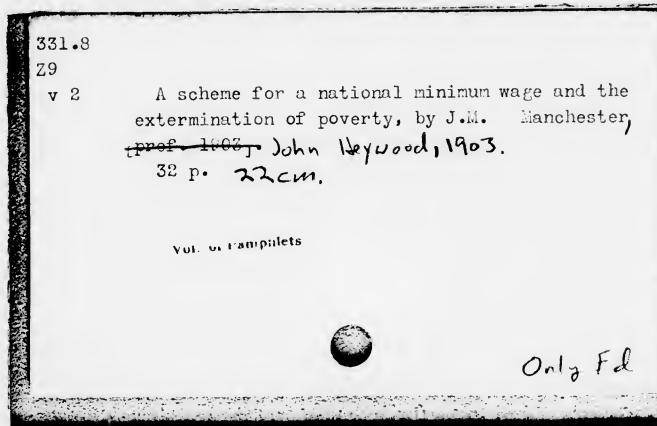 331.8
Z9
v 2 A scheme for a national minimum wage and the
extermination of poverty, by J.M. Manchester,
[pref. 1903]. John Heywood, 1903.
32 p. 22cm.
Vol. of Pamphlets
Only Ed